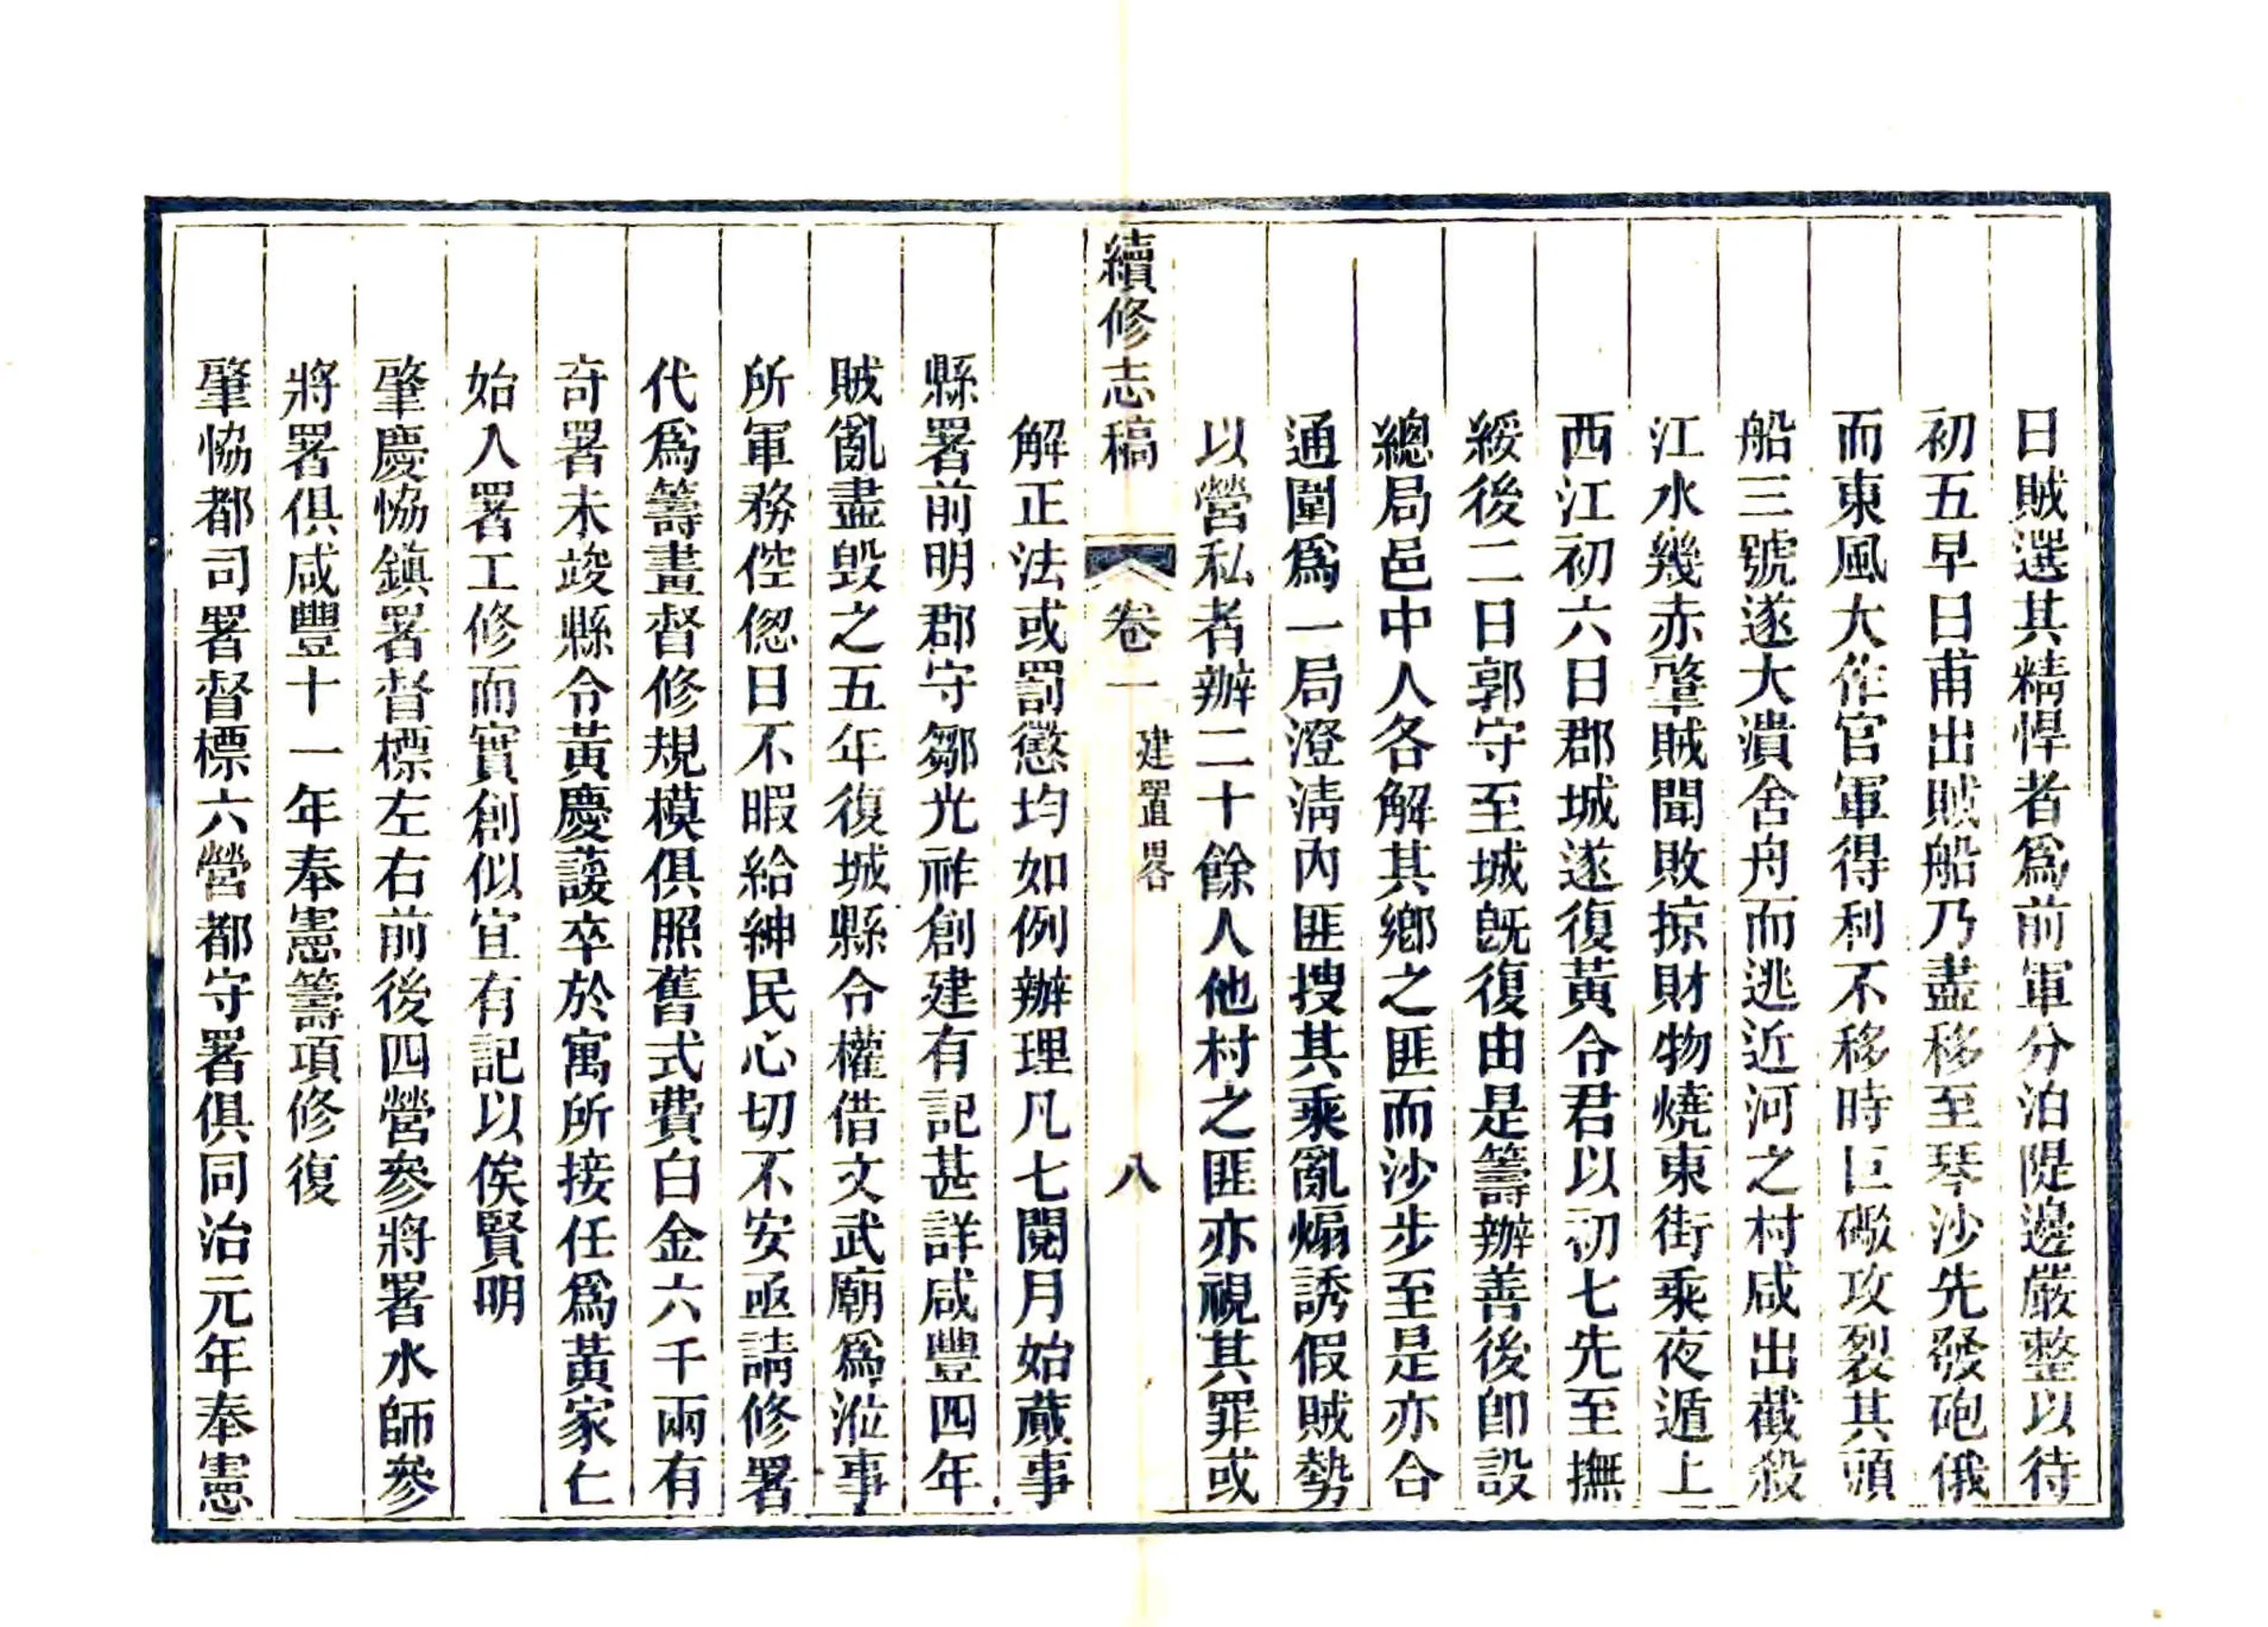 日賊選其精悍者爲前軍分泊隄邊嚴整以待
初五早日甫出賊船乃盡移至琴沙先發砲俄
而東風大作官軍得利不移時巨礮攻裂其頭
船三號遂大潰舍舟而逃近河之村咸出截殺
江水幾赤肇賊聞敗掠財物燒東街乘夜遁上
西江初六日郡城遂復黃令君以初七先至撫
綏後二日郭守至城旣復由是籌辦善後卽設
總局邑中人各解其鄉之匪而沙步至是亦合
通圍爲一局澄淸內匪搜其乘亂煽誘假賊勢
以營私者辦二十餘人他村之匪亦視其罪或
續修志稿 卷一 建置畧 八
解正法或罰懲均如例辦理凡七閱月始蕆事
縣署前明郡守鄒光祚創建有記甚詳咸豐四年
賊亂盡毀之五年復城縣令權借文武廟爲涖事
所軍務倥偬日不暇給紳民心切不安亟請修署
代爲籌畫督修規模俱照舊式費白金六千兩有
奇署未竣縣令黃慶護卒於寓所接任爲黃家仁
始入署工修而實創似宜有記以俟賢明
肇慶恊鎭署督標左右前後四營參將署水師參
將署俱咸豐十一年奉憲籌項修復
肇恊都司署督標六營都守署俱同治元年奉憲